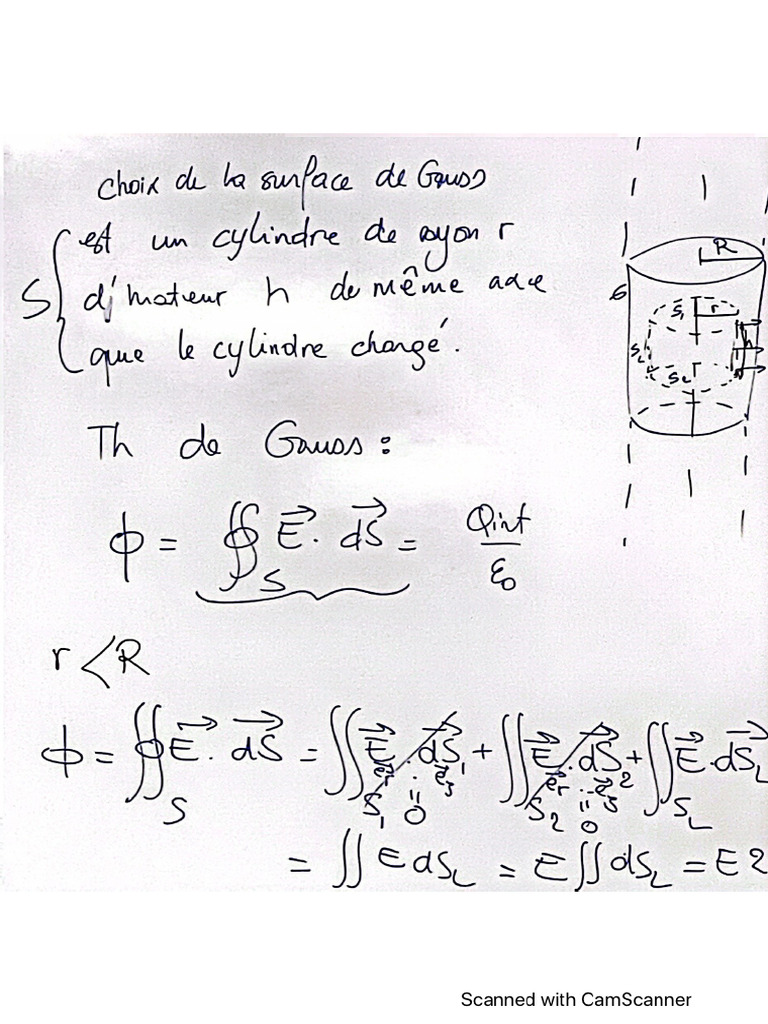 choix de la surface de Gauss
S { est un cylindre de rayon r
d'hauteur h de même axe
que le cylindre chargé.
R
σ
S₁ r
S_L h
S₂
Th de Gauss :
ϕ = ∯_S E⃗ . dS⃗ = Qint / ε₀
r < R
ϕ = ∯_S E⃗ . dS⃗ = ∬_S₁ E⃗ . dS⃗₁ + ∬_S₂ E⃗ . dS⃗₂ + ∬_S_L E⃗ . dS⃗_L
= 0 = 0
= ∬ E dS_L = E ∬ dS_L = E 2
Scanned with CamScanner